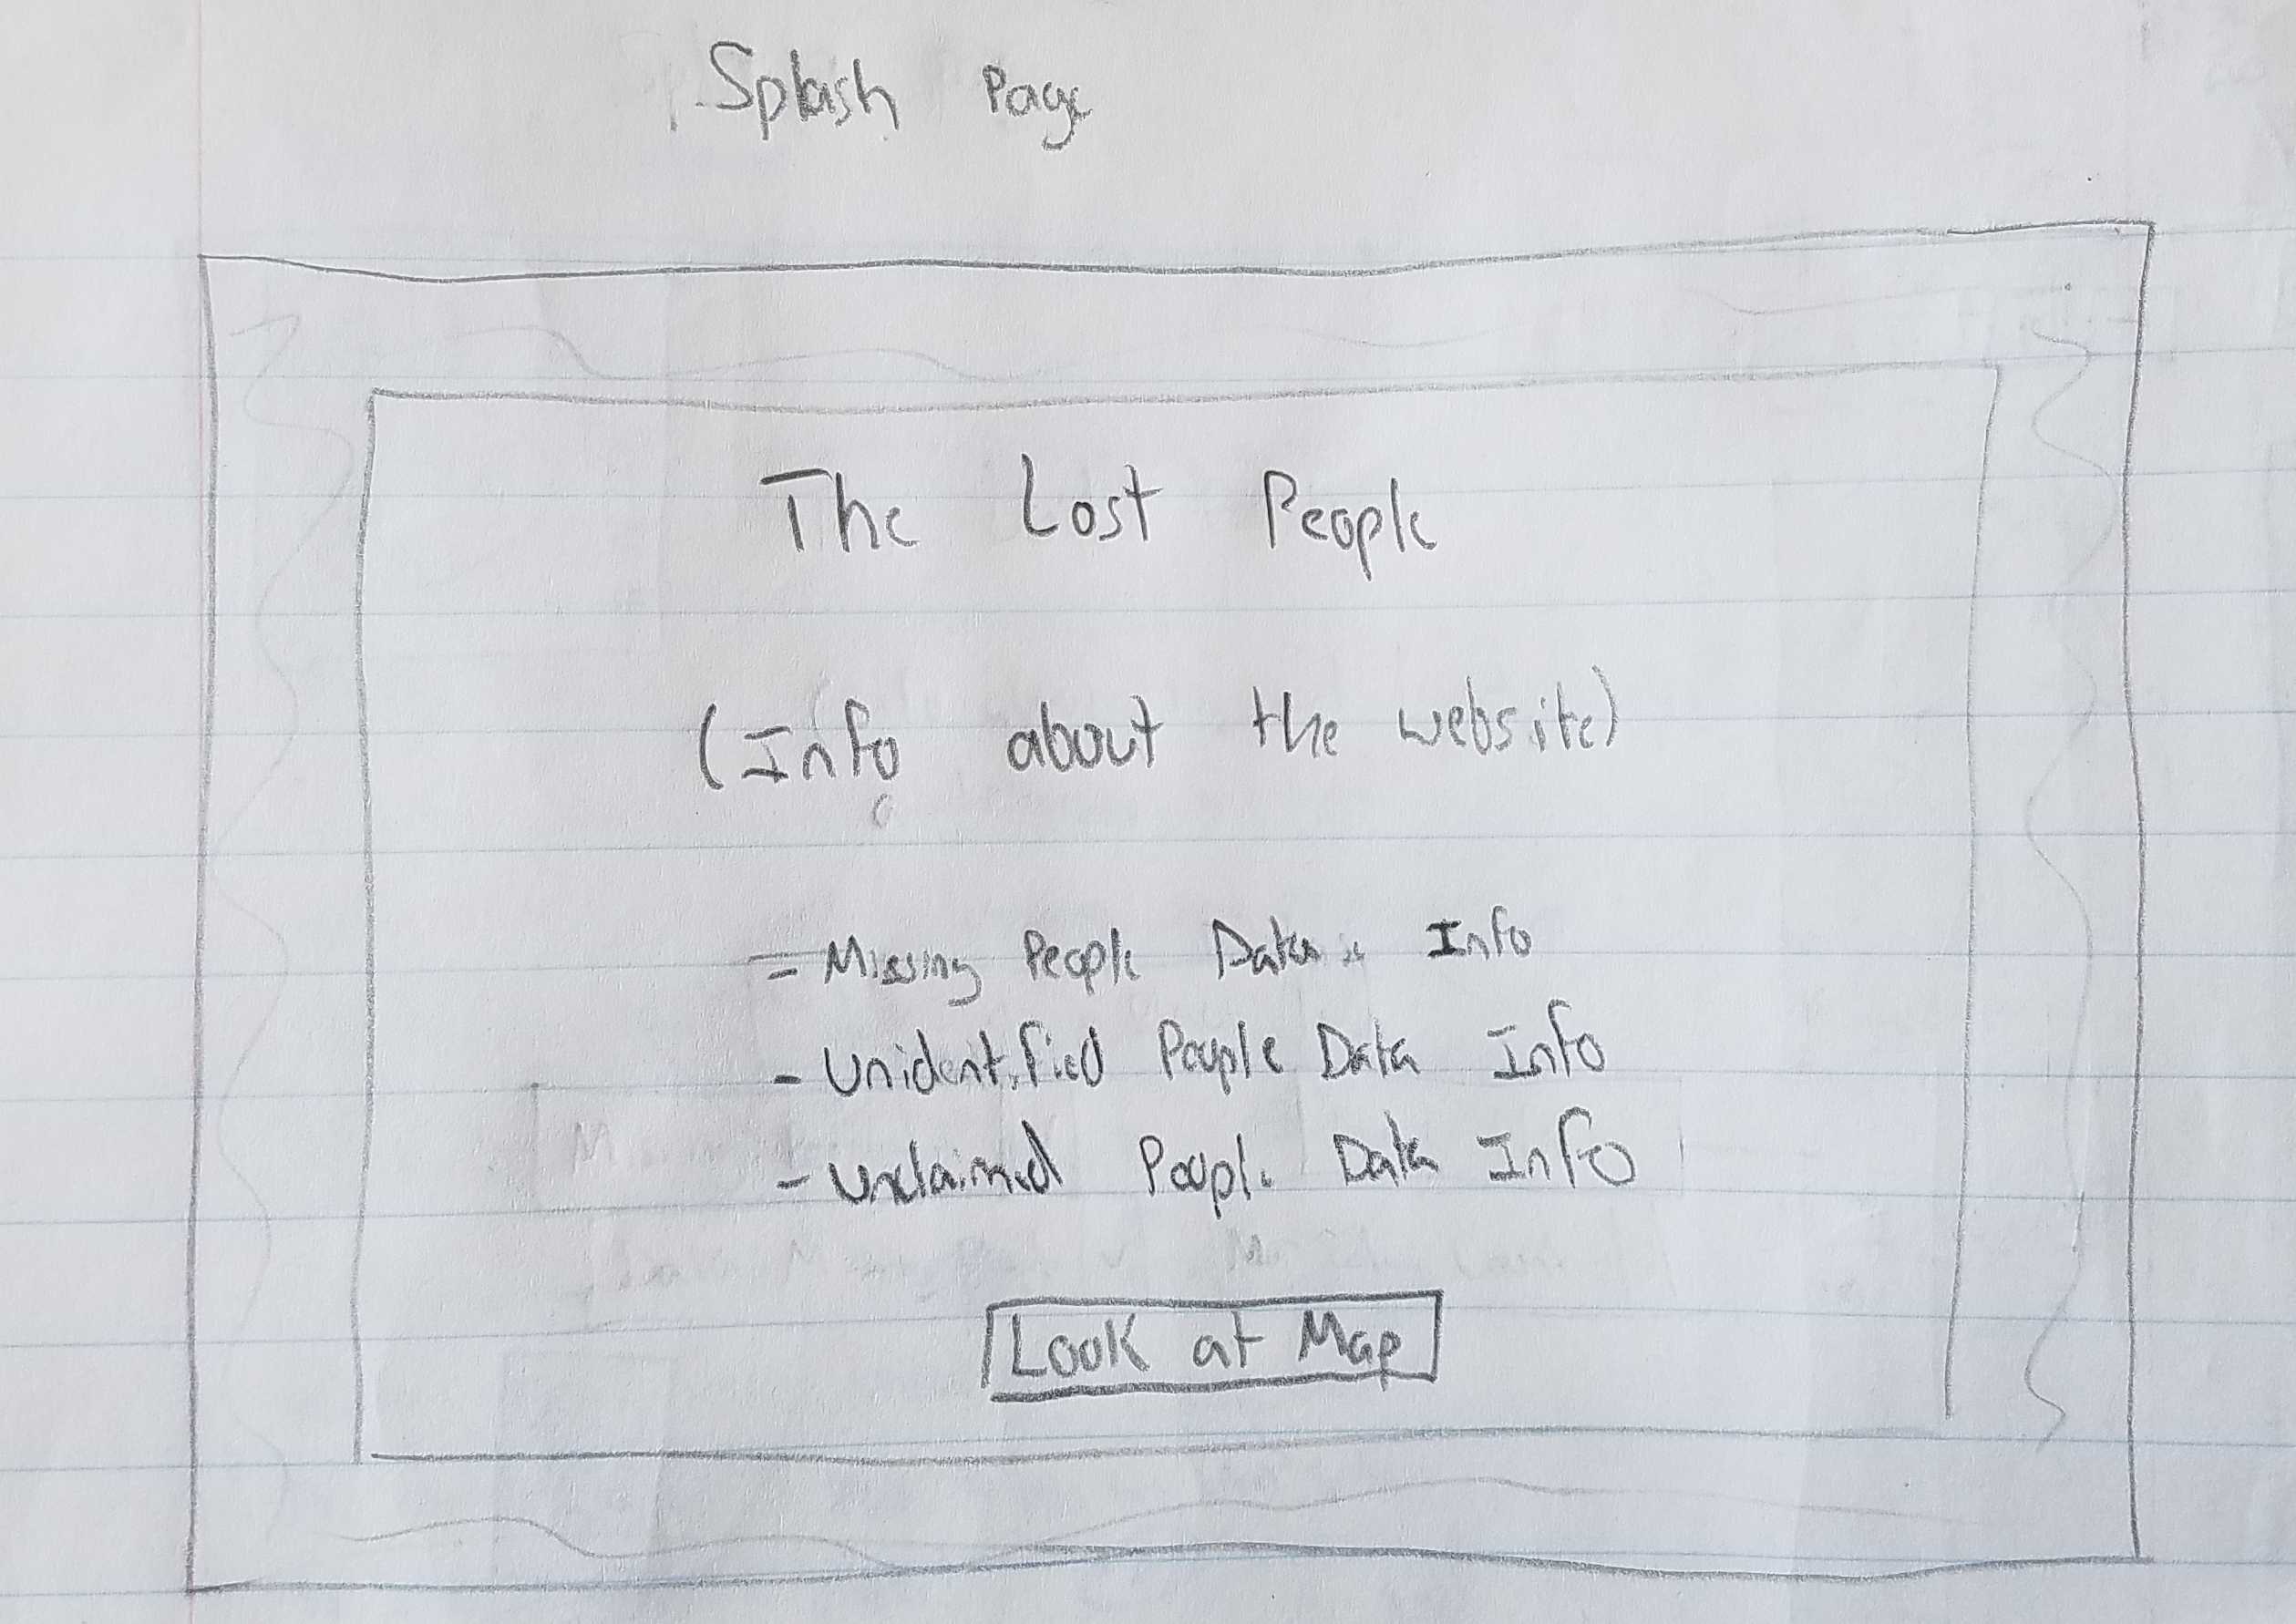 Splash Page
The Lost People
(Info about the website)
- Missing People Data Info
- Unidentified People Data Info
- Unclaimed People Data Info
Look at Map